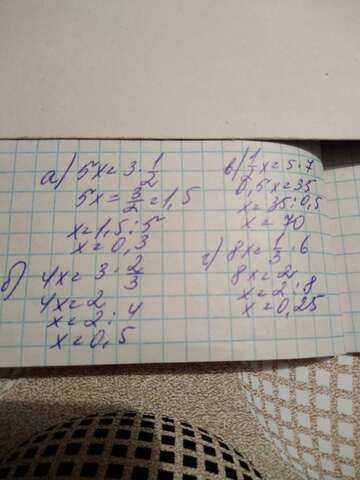 а) 5x = 3 · 1/2
5x = 3/2 = 1,5
x = 1,5 : 5
x = 0,3
б) 4x = 3 · 2/3
4x = 2
x = 2 : 4
x = 0,5
в) 1/2 x = 5 · 7
0,5x = 35
x = 35 : 0,5
x = 70
г) 8x = 1/3 · 6
8x = 2
x = 2 : 8
x = 0,25